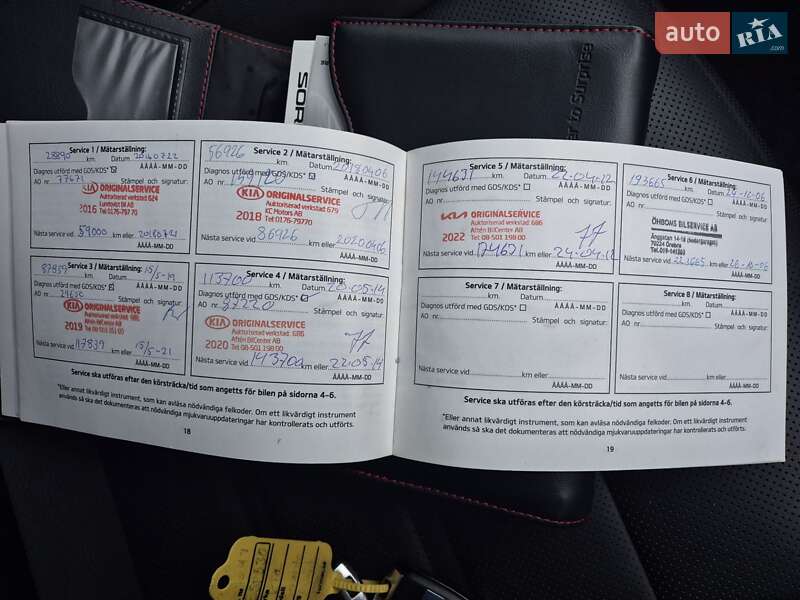 auto RIA.com
SOR
er to Surprise
Service 1 / Mätarställning:
28890 km. Datum 20160722
ÅÅÅÅ-MM-DD
Diagnos utförd med GDS/KDS*
AO nr. 77671 Stämpel och signatur:
KIA ORIGINALSERVICE
Auktoriserad verkstad 624
2016 Tel 0176-797 70
Nästa service vid 59000 km eller 20180721
ÅÅÅÅ-MM-DD
Service 2 / Mätarställning:
56926 km. Datum 20180406
ÅÅÅÅ-MM-DD
Diagnos utförd med GDS/KDS*
AO nr. Stämpel och signatur:
KIA ORIGINALSERVICE
Auktoriserad verkstad 679
2018 KC Motors AB
Tel 0176-79770
Nästa service vid 86926 km eller 20200406
ÅÅÅÅ-MM-DD
Service 3 / Mätarställning:
87839 km. Datum 15/5-19
ÅÅÅÅ-MM-DD
Diagnos utförd med GDS/KDS*
AO nr. 24650 Stämpel och signatur:
KIA ORIGINALSERVICE
Auktoriserad verkstad 686
2019 Aftén BilCenter AB
Nästa service vid 117839 km eller 15/5-21
ÅÅÅÅ-MM-DD
Service 4 / Mätarställning:
113700 km. Datum 20-05-14
ÅÅÅÅ-MM-DD
Diagnos utförd med GDS/KDS*
AO nr. 37220 Stämpel och signatur:
KIA ORIGINALSERVICE
Auktoriserad verkstad 686
2020 Aftén BilCenter AB
Tel 08-501 198 00
Nästa service vid 143700 km eller 22-05-14
ÅÅÅÅ-MM-DD
Service ska utföras efter den körsträcka/tid som angetts för bilen på sidorna 4–6.
*Eller annat likvärdigt instrument, som kan avläsa nödvändiga felkoder. Om ett likvärdigt instrument
används så ska det dokumenteras att nödvändiga mjukvaruuppdateringar har kontrollerats och utförts.
18
Service 5 / Mätarställning:
144631 km. Datum 22-04-12
ÅÅÅÅ-MM-DD
Diagnos utförd med GDS/KDS*
AO nr. Stämpel och signatur:
KIA ORIGINALSERVICE
Auktoriserad verkstad 686
2022 Aftén BilCenter AB
Tel 08-501 198 00
Nästa service vid 174631 km eller 24-04-12
ÅÅÅÅ-MM-DD
Service 6 / Mätarställning:
193665 km. Datum 24-10-06
ÅÅÅÅ-MM-DD
Diagnos utförd med GDS/KDS*
AO nr. Stämpel och signatur:
ÖHBOMS BILSERVICE AB
70224 Örebro
Nästa service vid 223665 km eller 26-10-06
ÅÅÅÅ-MM-DD
Service 7 / Mätarställning:
km. Datum
ÅÅÅÅ-MM-DD
Diagnos utförd med GDS/KDS*
AO nr. Stämpel och signatur:
Nästa service vid km eller
ÅÅÅÅ-MM-DD
Service 8 / Mätarställning:
km. Datum
ÅÅÅÅ-MM-DD
Diagnos utförd med GDS/KDS*
AO nr. Stämpel och signatur:
Nästa service vid km eller
ÅÅÅÅ-MM-DD
Service ska utföras efter den körsträcka/tid som angetts för bilen på sidorna 4–6.
*Eller annat likvärdigt instrument, som kan avläsa nödvändiga felkoder. Om ett likvärdigt instrument
används så ska det dokumenteras att nödvändiga mjukvaruuppdateringar har kontrollerats och utförts.
19